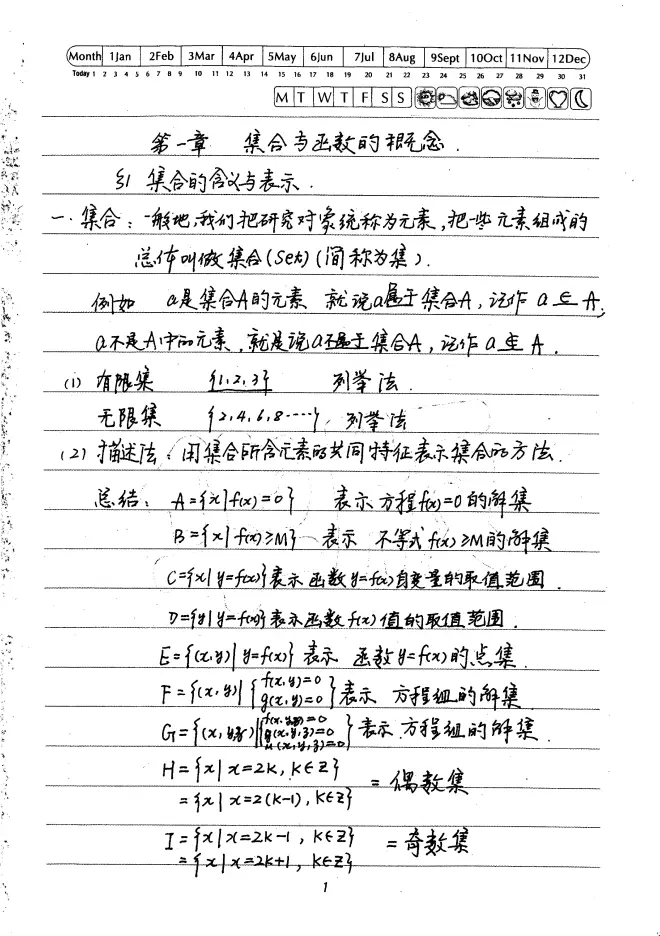 Month 1Jan 2Feb 3Mar 4Apr 5May 6Jun 7Jul 8Aug 9Sept 10Oct 11Nov 12Dec
Today 1 2 3 4 5 6 7 8 9 10 11 12 13 14 15 16 17 18 19 20 21 22 23 24 25 26 27 28 29 30 31
M T W T F S S
第一章 集合与函数的概念.
§1 集合的含义与表示.
一.集合:一般地,我们把研究对象统称为元素,把一些元素组成的
总体叫做集合(Set)(简称为集).
例如 a是集合A的元素 就说a属于集合A,记作 a∈A,
a不是A中的元素,就是说a不属于集合A,记作 a∉A.
(1) 有限集 {1,2,3} 列举法.
无限集 {2,4,6,8……} 列举法
(2) 描述法:用集合所含元素的共同特征表示集合的方法.
总结: A={x|f(x)=0} 表示方程f(x)=0的解集
B={x|f(x)≥M} 表示 不等式f(x)≥M的解集
C={x|y=f(x)}表示函数y=f(x)自变量的取值范围.
D={y|y=f(x)}表示函数f(x)值的取值范围.
E={(x,y)|y=f(x)}表示 函数y=f(x)的点集.
F={(x,y)|{f(x,y)=0 g(x,y)=0}表示 方程组的解集.
G={(x,y,z)|{f(x,y,z)=0 g(x,y,z)=0 u(x,y,z)=0}表示方程组的解集.
H={x|x=2k,k∈Z}
={x|x=2(k-1),k∈Z} =偶数集
I={x|x=2k-1,k∈Z} =奇数集
={x|x=2k+1,k∈Z}
1